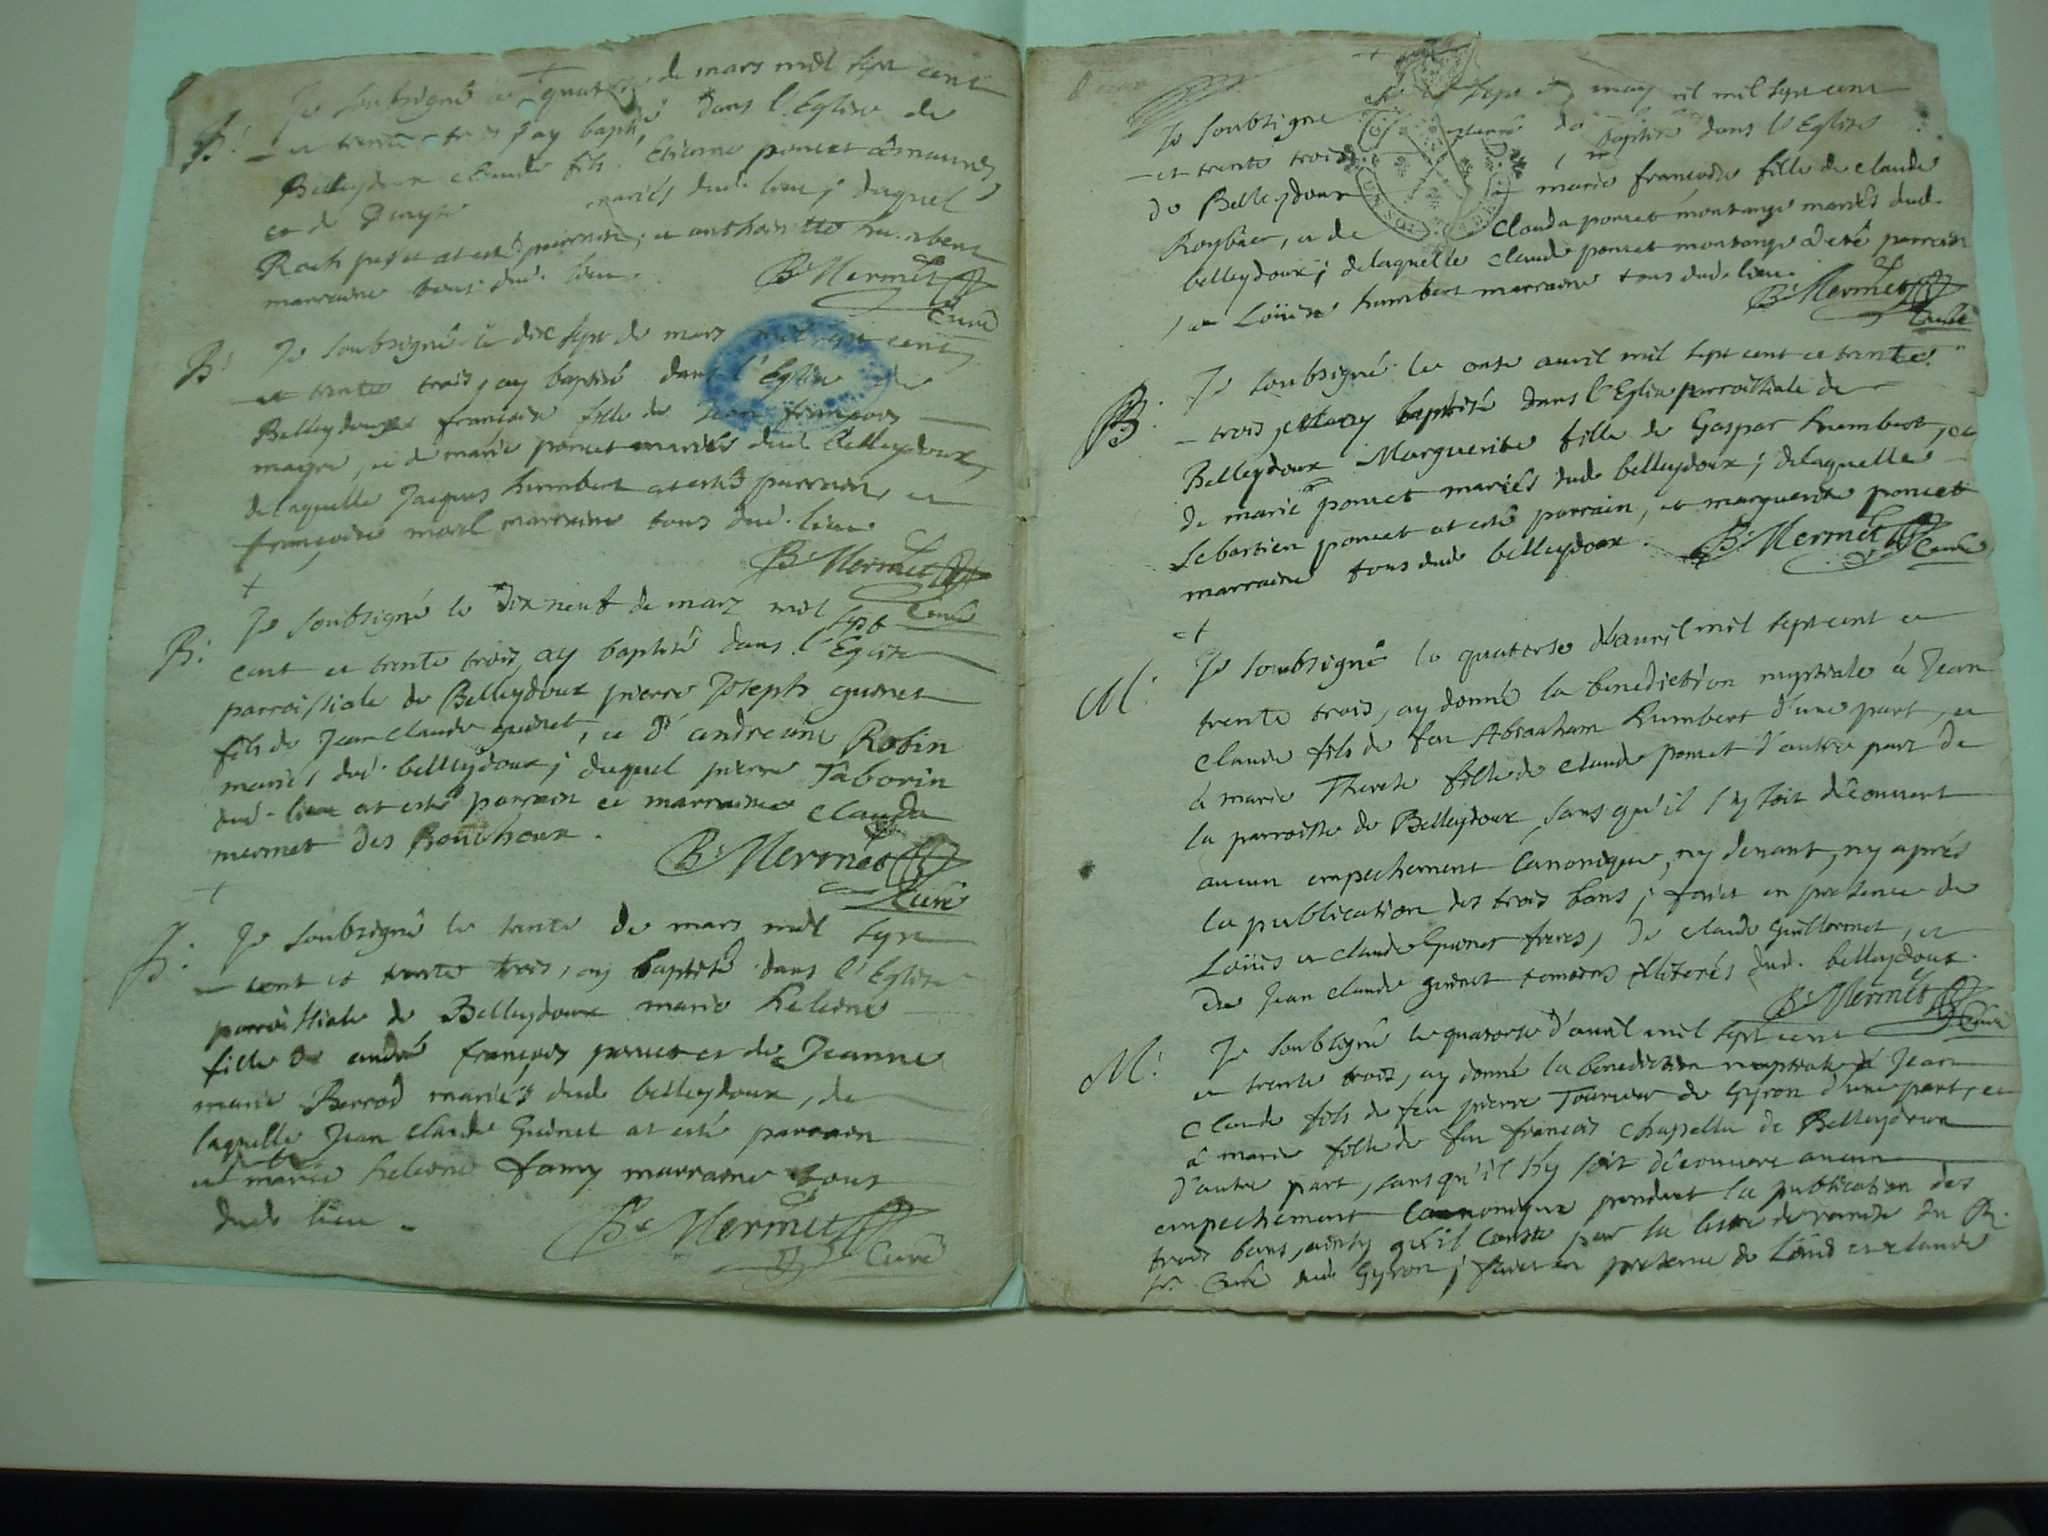 Je soubsigné le quatorse de mars mil sept cent
B: et trente trois j'ay baptisé dans l'Eglise de
Belleydoux claude fils Etienne poncet
et de mariés dud. lieu; duquel
Roch at esté parrain; et anthoinette humbert
marraine tous dud. lieu.
Be Mermet
Curé
B: Je soubsigné le dix sept de mars mil sept cent
et trente trois, ay baptisé dans l'Eglise de
Belleydoux francoise fille de Jean francois
maire, et de marie poncet mariés dud. Belleydoux,
de laquelle Jacques humbert at esté parrain, et
françoise marraine tous dud. lieu
Be Mermet
Curé
B: Je soubsigné le dix neuf de mars mil sept
cent et trente trois, ay baptisé dans l'Eglise
parroissiale de Belleydoux pierre Joseph guinet
fils de Jean claude guinet, et d'andreanne Robin
mariés dud. belleydoux; duquel pierre Taborin
dud. lieu at esté parrain et marraine Clauda
mermet des Bouchoux.
Be Mermet
Curé
B: Je soubsigné le trente de mars mil sept
cent et trente trois, ay baptisé dans l'Eglise
parroissiale de Belleydoux marie heleine
fille de andré françois poncet et de Jeanne
marie Berrod mariés dud. belleydoux, de
laquelle Jean claude Guinet at esté parrain
et marie heleine famy marraine tous
dud. lieu.
Be Mermet
Curé
Je soubsigné le sept mil sept cent
et trente trois baptisé dans l'Eglise
de Belleydoux marie françoise fille de claude
et de Clauda poncet montange mariés dud.
belleydoux; de laquelle claude poncet montange a esté parrain
et Loüise humbert marraine tous dud. lieu.
Be Mermet
Curé
B: Je soubsigné le onse avril mil sept cent et trente
trois, ay baptisé dans l'Eglise parroissiale de
Belleydoux Marguerite fille de Gaspar humbert, et
de marie poncet mariés dud. belleydoux; de laquelle
Sebastien poncet at esté parrain, et marguerite poncet
marraine tous dud. belleydoux. Be Mermet
Curé
M: Je soubsigné le quatorse d'avril mil sept cent et
trente trois, ay donné la benediction nuptiale à Jean
claude fils de feu Abraham humbert d'une part, et
à marie Therese fille de claude poncet d'autre part de
la parroisse de Belleydoux, sans qu'il s'y soit découvert
aucun empechement Canonique, ny devant, ny aprés
la publication des trois bans; fait en presence de
Loüis et claude Guinet freres, de claude Guillermet, et
de Jean claude guinet temoins illiterés dud. belleydoux.
Be Mermet
Curé
M: Je soubsigné le quatorse d'avril mil sept cent
et trente trois, ay donné la benediction nuptiale à Jean
Claude fils de feu pierre Tournier de Gyron d'une part, et
à marie fille de feu françois chapellu de Belleydoux
d'autre part, sans qu'il s'y soit découvert aucun
empechement Canonique pendant la publication des
trois bans, ainsy qu'il Conste par la lettre de remise du R.
Sr. Curé dud. Gyron; fait en presence de Loüis et claude